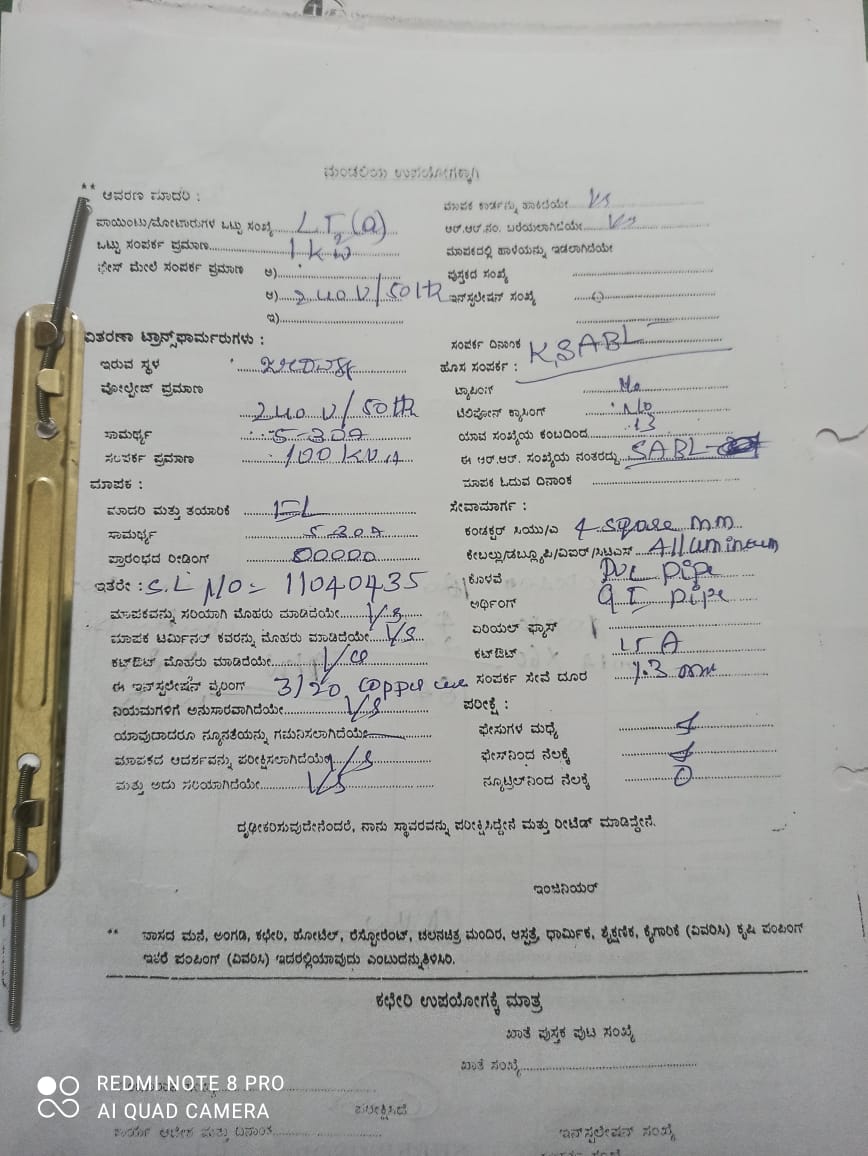 ಮಂಡಲಿಯ ಉಪಯೋಗಕ್ಕಾಗಿ
** ಆವರಣ ಮಾದರಿ :
ಪಾಯಿಂಟು/ಮೋಟಾರುಗಳ ಒಟ್ಟು ಸಂಖ್ಯೆ L.T, (a)
ಒಟ್ಟು ಸಂಪರ್ಕ ಪ್ರಮಾಣ 1 kw
ಫೇಸ್ ಮೇಲೆ ಸಂಪರ್ಕ ಪ್ರಮಾಣ ಅ)
ಆ) 240 V/50Hz
ಇ)
ವಿತರಣಾ ಟ್ರಾನ್ಸ್‌ಫಾರ್ಮರುಗಳು :
ಇರುವ ಸ್ಥಳ
ವೋಲ್ಟೇಜ್ ಪ್ರಮಾಣ
240 V/50Hz
ಸಾಮರ್ಥ್ಯ 5-30A
ಸಂಪರ್ಕ ಪ್ರಮಾಣ 100 KVA
ಮಾಪಕ :
ಮಾದರಿ ಮತ್ತು ತಯಾರಿಕೆ
ಸಾಮರ್ಥ್ಯ 5-30A
ಪ್ರಾರಂಭದ ರೀಡಿಂಗ್ 00000
ಇತರೇ : S.L NO = 11040435
ಮಾಪಕವನ್ನು ಸರಿಯಾಗಿ ಮೊಹರು ಮಾಡಿದೆಯೇ
ಮಾಪಕ ಟರ್ಮಿನಲ್ ಕವರನ್ನು ಮೊಹರು ಮಾಡಿದೆಯೇ
ಕಟ್‌ಔಟ್ ಮೊಹರು ಮಾಡಿದೆಯೇ
ಈ ಇನ್‌ಸ್ಟಲೇಷನ್ ವೈರಿಂಗ್ 3/20 Copper
ನಿಯಮಗಳಿಗೆ ಅನುಸಾರವಾಗಿದೆಯೇ
ಯಾವುದಾದರೂ ನ್ಯೂನತೆಯನ್ನು ಗಮನಿಸಲಾಗಿದೆಯೇ
ಮಾಪಕದ ಆದರ್ಶವನ್ನು ಪರೀಕ್ಷಿಸಲಾಗಿದೆಯೇ
ಮತ್ತು ಅದು ಸರಿಯಾಗಿದೆಯೇ
ಮಾಪಕ ಕಾರ್ಡನ್ನು ಹಾಕಿದೆಯೇ
ಆರ್.ಆರ್.ನಂ. ಬರೆಯಲಾಗಿದೆಯೇ
ಮಾಪಕದಲ್ಲಿ ಹಾಳೆಯನ್ನು ಇಡಲಾಗಿದೆಯೇ
ಪುಸ್ತಕದ ಸಂಖ್ಯೆ
ಇನ್‌ಸ್ಟಲೇಷನ್ ಸಂಖ್ಯೆ
ಸಂಪರ್ಕ ದಿನಾಂಕ KSABL
ಹೊಸ ಸಂಪರ್ಕ :
ಟ್ಯಾಪಿಂಗ್ No
ಟೆಲಿಫೋನ್ ಕ್ರಾಸಿಂಗ್ No
ಯಾವ ಸಂಖ್ಯೆಯ ಕಂಬದಿಂದ 13
ಈ ಆರ್.ಆರ್. ಸಂಖ್ಯೆಯ ನಂತರದ್ದು SABL
ಮಾಪಕ ಓದುವ ದಿನಾಂಕ
ಸೇವಾಮಾರ್ಗ :
ಕಂಡಕ್ಟರ್ ಸಿಯು/ಎ 4 square mm
ಕೇಬಲ್ಲು/ಡಬ್ಲ್ಯೂಪಿ/ವಿಐಆರ್/ಸಿಟಿಎಸ್ Alluminum
ಕೊಳವೆ PVC pipe
ಅರ್ಥಿಂಗ್ G I pipe
ಏರಿಯಲ್ ಫ್ಯೂಸ್
ಕಟ್‌ಔಟ್ 15 A
ಸಂಪರ್ಕ ಸೇವೆ ದೂರ
ಪರೀಕ್ಷೆ :
ಫೇಸುಗಳ ಮಧ್ಯೆ
ಫೇಸ್‌ನಿಂದ ನೆಲಕ್ಕೆ
ನ್ಯೂಟ್ರಲ್‌ನಿಂದ ನೆಲಕ್ಕೆ 0
ದೃಢೀಕರಿಸುವುದೇನೆಂದರೆ, ನಾನು ಸ್ಥಾವರವನ್ನು ಪರಿಕ್ಷಿಸಿದ್ದೇನೆ ಮತ್ತು ರೀಟೆಡ್ ಮಾಡಿದ್ದೇನೆ.
ಇಂಜಿನಿಯರ್
** ವಾಸದ ಮನೆ, ಅಂಗಡಿ, ಕಛೇರಿ, ಹೋಟೆಲ್, ರೆಸ್ಟೋರೆಂಟ್, ಚಲನಚಿತ್ರ ಮಂದಿರ, ಆಸ್ಪತ್ರೆ, ಧಾರ್ಮಿಕ, ಶೈಕ್ಷಣಿಕ, ಕೈಗಾರಿಕೆ (ವಿವರಿಸಿ) ಕೃಷಿ ಪಂಪಿಂಗ್
ಇತರೆ ಪಂಪಿಂಗ್ (ವಿವರಿಸಿ) ಇದರಲ್ಲಿಯಾವುದು ಎಂಬುದನ್ನುತಿಳಿಸಿರಿ.
ಕಛೇರಿ ಉಪಯೋಗಕ್ಕೆ ಮಾತ್ರ
ಖಾತೆ ಪುಸ್ತಕ ಪುಟ ಸಂಖ್ಯೆ
ಖಾತೆ ಸಂಖ್ಯೆ
ಪರೀಕ್ಷಿಸಿದೆ
ಕಾರ್ಯ ಆದೇಶ ಮತ್ತು ದಿನಾಂಕ
ಇನ್‌ಸ್ಟಲೇಷನ್ ಸಂಖ್ಯೆ
REDMI NOTE 8 PRO
AI QUAD CAMERA